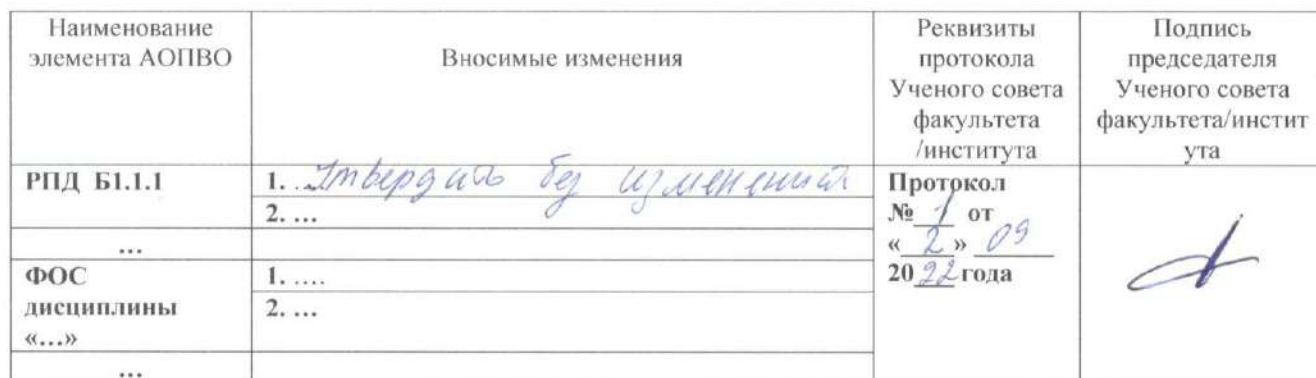 Наименование
элемента АОПВО
Вносимые изменения
Реквизиты
протокола
Ученого совета
факультета
/института
Подпись
председателя
Ученого совета
факультета/инстит
ута
РПД Б1.1.1
1. ..Утвердить без изменений
2. ...
Протокол
№ 1 от
« 2 » 09
2022 года
...
ФОС
дисциплины
«...»
1. .....
2. ...
...